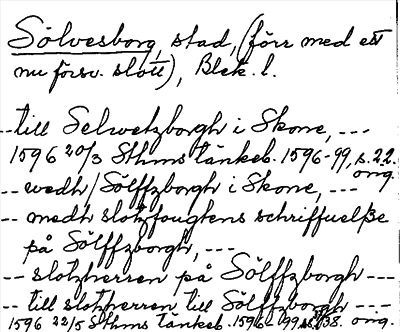 Sölvesborg, stad, (förr med ett
nu försv. slott), Blek. l.
--till Selwetzborgh i Skone, ---
1596 20/3 Sthms tänkeb. 1596-99, s. 22.
omg.
-- wedh/Sölffzborgh i Skone, ---
-- medh slotzfougtens schriffuelße
på Sölffzborgh, ---
-- slotzherren på Sölffzborgh ---
-- till slotzherren till Sölffzborgh ---
1596 22/5 Sthms tänkeb. 1596-99 s. 38. omg.